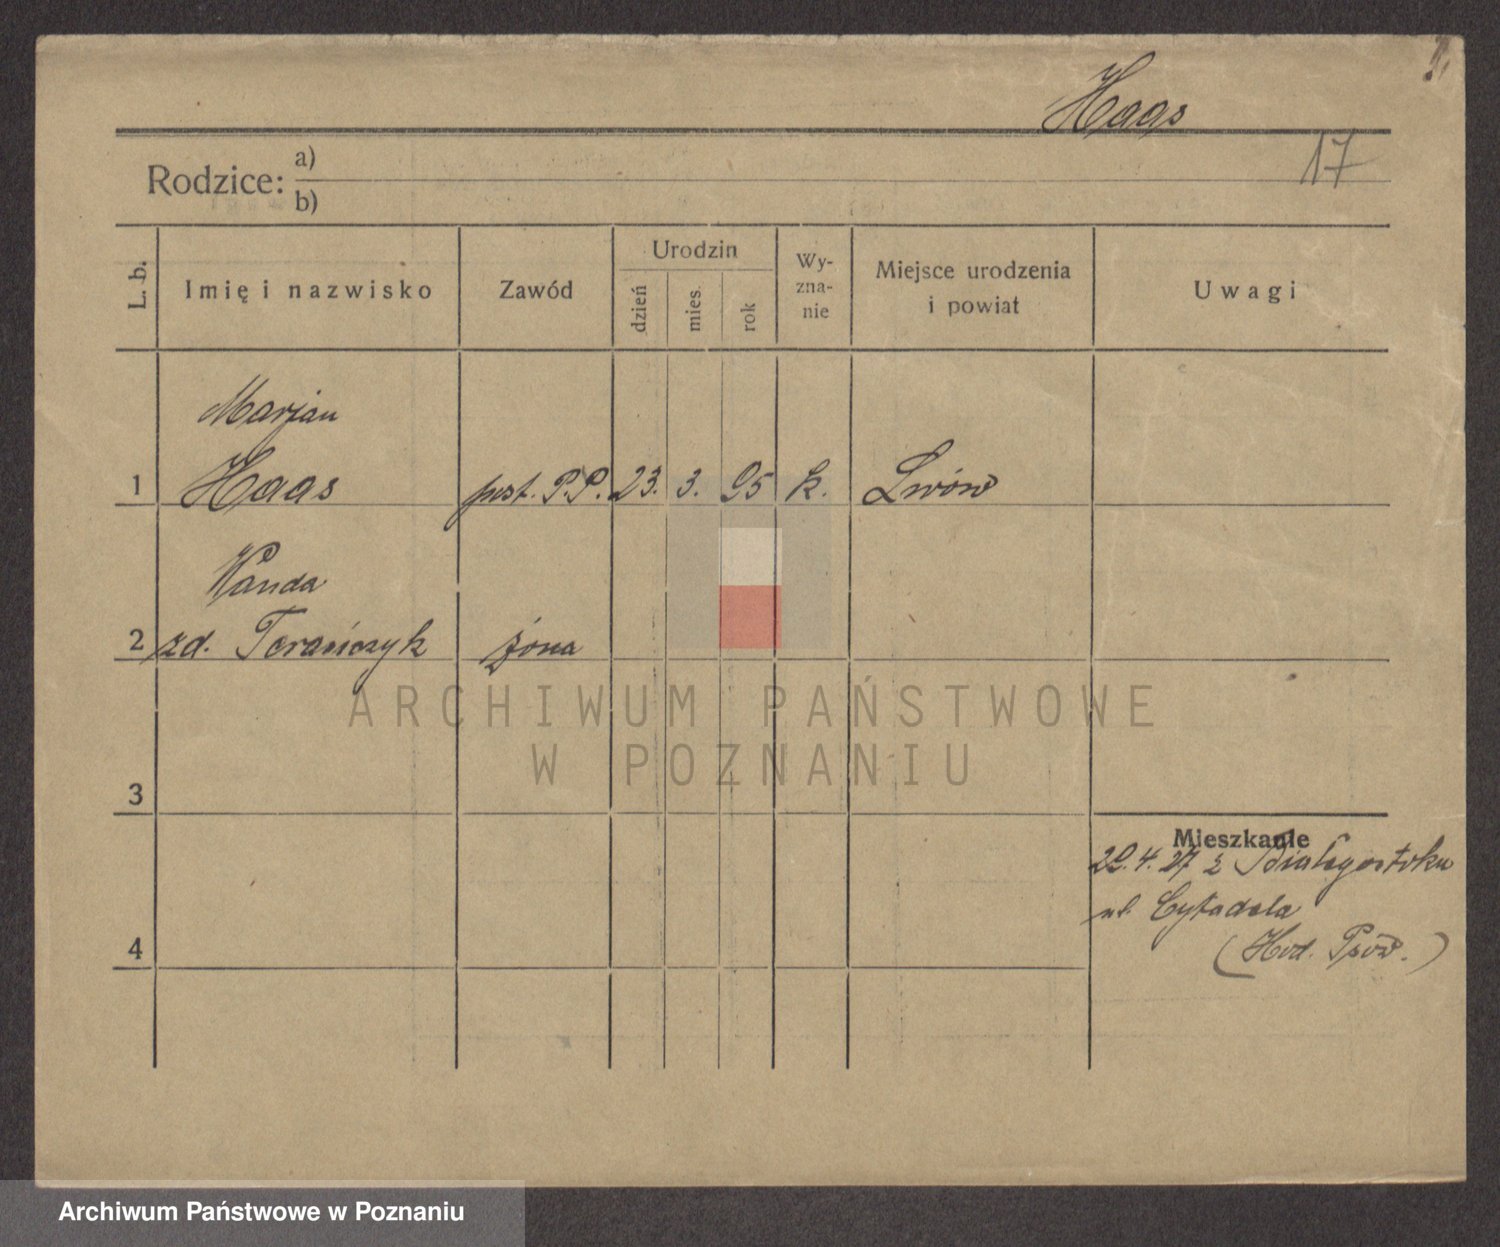 Haas
17
Rodzice: a)
b)
L. b.
Imię i nazwisko
Zawód
Urodzin
dzień
mies.
rok
Wy-
zna-
nie
Miejsce urodzenia
i powiat
Uwagi
Marjan
1 Haas post. P.P. 23. 3. 95 k. Lwów
Wanda
2 zd. Terańczyk żona
ARCHIWUM PAŃSTWOWE
W POZNANIU
3
Mieszkanie
22.4.27 z Białegostoku
ul. Cytadela
4
Archiwum Państwowe w Poznaniu